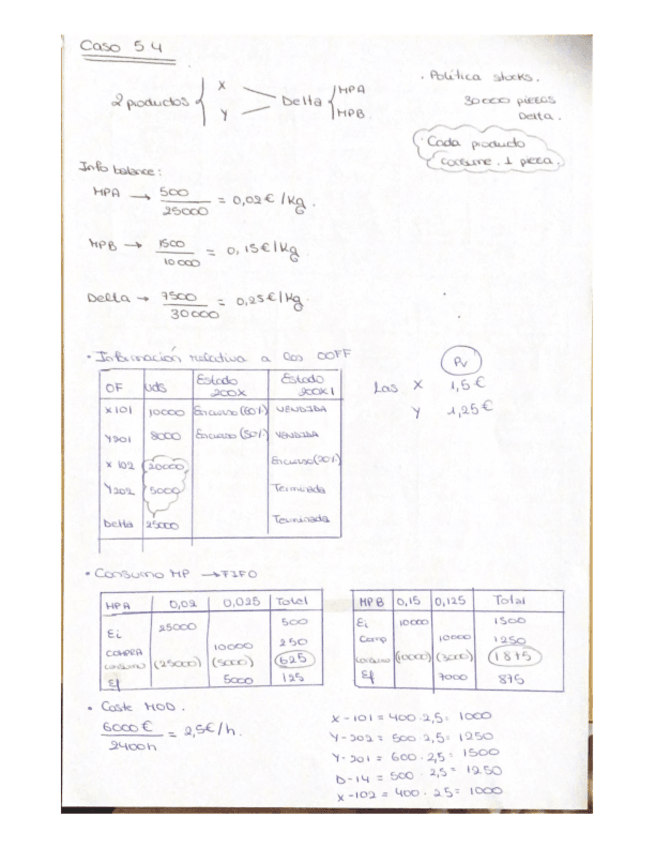 Caso 5 4
2 productos { X Y Delta { MPA MPB
· Política stocks.
30000 piezas
Delta.
Cada producto
consume 1 pieza.
Info balance:
MPA → 500 / 25000 = 0,02 € /Kg.
MPB → 1500 / 10000 = 0,15 € /Kg
Delta → 7500 / 30000 = 0,25 € /Kg.
· Información relativa a las OOFF
OF uds Estado 200X Estado 200X1
X101 10000 En curso (60%) VENDIDA
Y201 8000 En curso (50%) VENDIDA
X 102 20000 En curso (20%)
Y202 5000 Terminada
Delta 25000 Terminada
PV
Las X 1,5 €
Y 1,25 €
· Consumo MP → FIFO
MPA 0,02 0,025 Total
Ei 25000 500
COMPRA 10000 250
consumo (25000) (5000) 625
Ef 5000 125
MPB 0,15 0,125 Total
Ei 10000 1500
Comp 10000 1250
consumo (10000) (3000) 1875
Ef 7000 875
· Coste MOD.
6000 € / 2400h = 2,5€/h.
X-101 = 400 · 2,5 = 1000
Y-202 = 500 2,5 = 1250
Y-201 = 600 · 2,5 = 1500
D-14 = 500 · 2,5 = 1250
X-102 = 400 · 2,5 = 1000